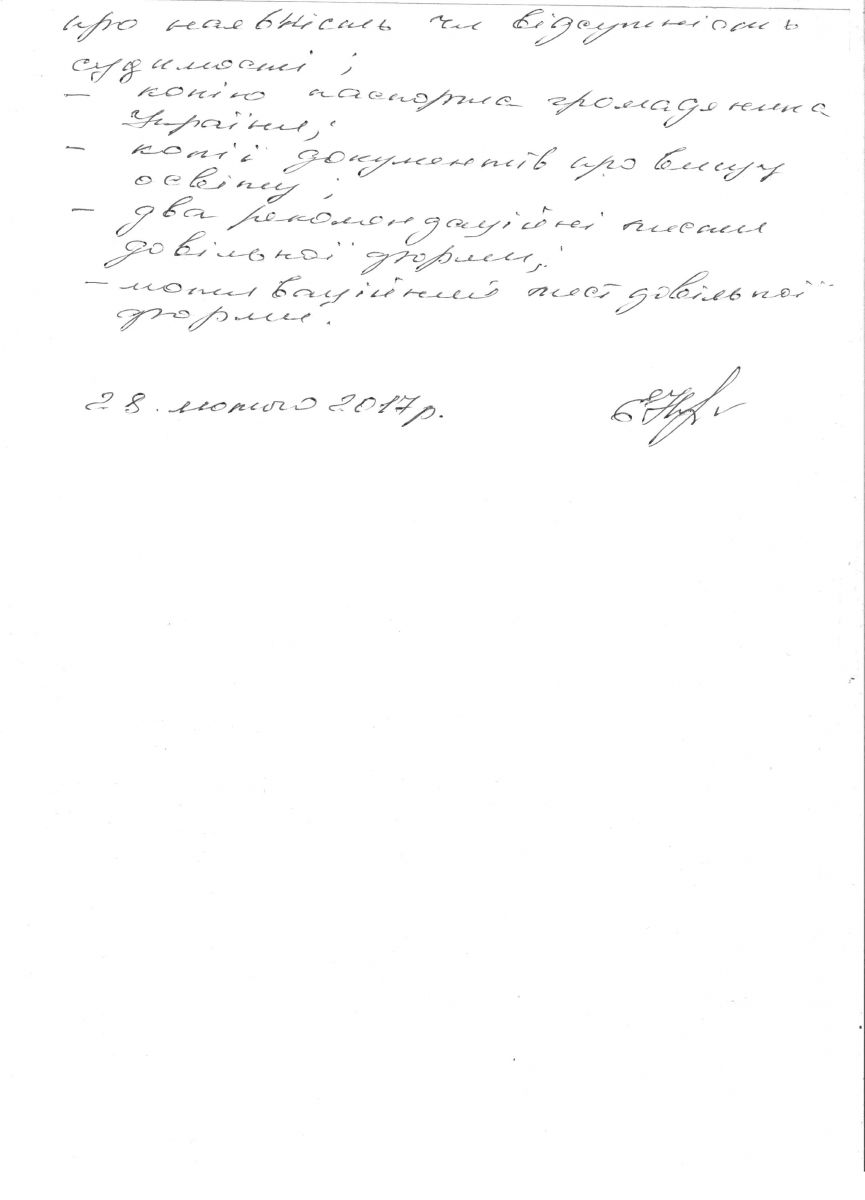 про наявність чи відсутність
судимості;
- копію паспорта громадянина
України;
- копії документів про вищу
освіту;
- два рекомендаційні листи
довільної форми;
- мотиваційний лист довільної
форми.
28. лютого 2017р.